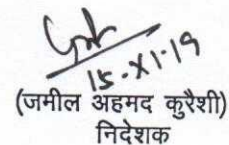 15-XI-19
(जमील अहमद कुरैशी)
निदेशक